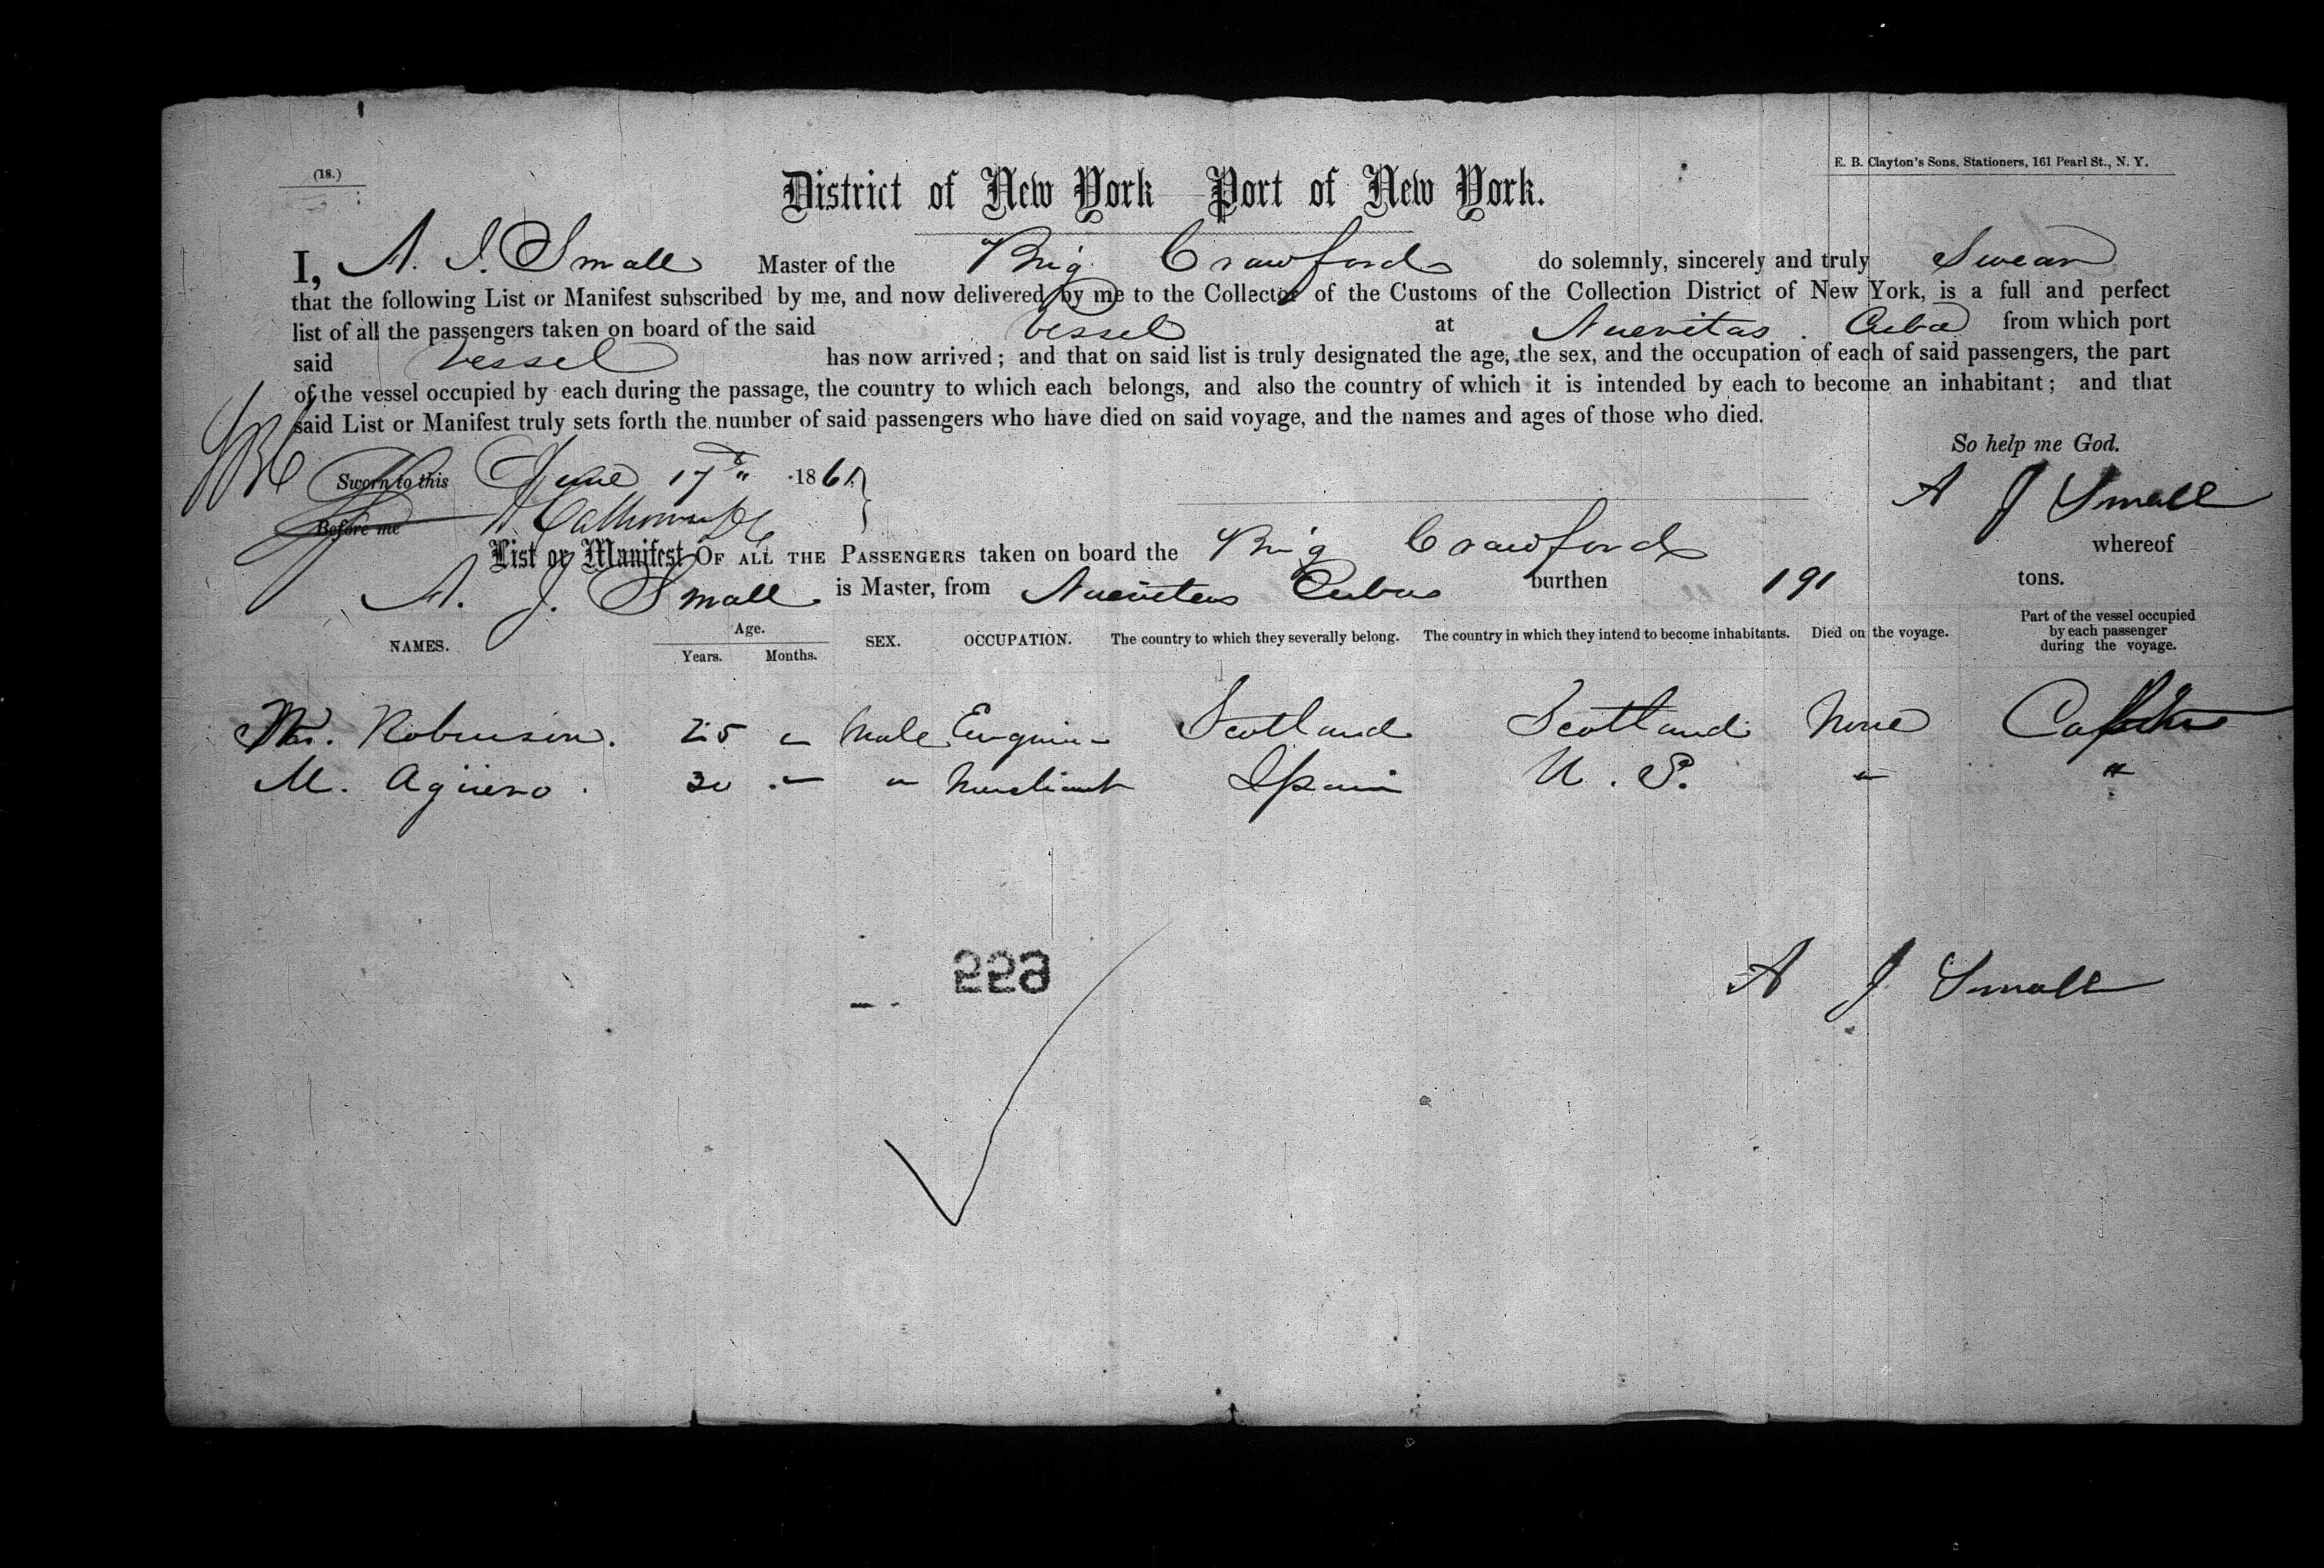 (18.)
E. B. Clayton's Sons, Stationers, 161 Pearl St., N. Y.
District of New York Port of New York.
I, A. J. Small Master of the Brig Crawford do solemnly, sincerely and truly Swear
that the following List or Manifest subscribed by me, and now delivered by me to the Collector of the Customs of the Collection District of New York, is a full and perfect
list of all the passengers taken on board of the said Vessel at Nuevitas. Cuba from which port
said Vessel has now arrived; and that on said list is truly designated the age, the sex, and the occupation of each of said passengers, the part
of the vessel occupied by each during the passage, the country to which each belongs, and also the country of which it is intended by each to become an inhabitant; and that
said List or Manifest truly sets forth the number of said passengers who have died on said voyage, and the names and ages of those who died.
So help me God.
Sworn to this June 17th 1861.
A J Small
Before me
List or Manifest OF ALL THE PASSENGERS taken on board the Brig Crawford whereof
A. J. Small is Master, from Nuevitas Cuba burthen 191 tons.
NAMES. Age. Years. Months. SEX. OCCUPATION. The country to which they severally belong. The country in which they intend to become inhabitants. Died on the voyage. Part of the vessel occupied by each passenger during the voyage.
Robinson. 25 " Male Scotland Scotland None
M. Agüero. 30 " " Merchant Spain U. S. " "
A J Small